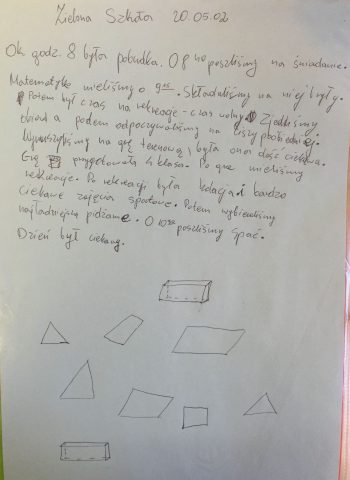 Zielona Szkoła 20.05.02
Ok godz. 8 była pobudka. O 8 poszliśmy na śniadanie.
Matematykę mieliśmy o 9. Składaliśmy na niej bryły.
Potem był czas na rekreację - czas wolny. Zjedliśmy
obiad a podem odpoczywaliśmy na ciszy poobiedniej.
Wyruszyliśmy na grę terenową, była ona dość ciekawa.
Grę przygotowała 4 klasa. Po grze mieliśmy
rekreację. Po rekreacji była kolacja i bardzo
ciekawe zajęcia sportowe. Potem wybieraliśmy
najładniejszą pidżamę. O 10 poszliśmy spać.
Dzień był ciekawy.